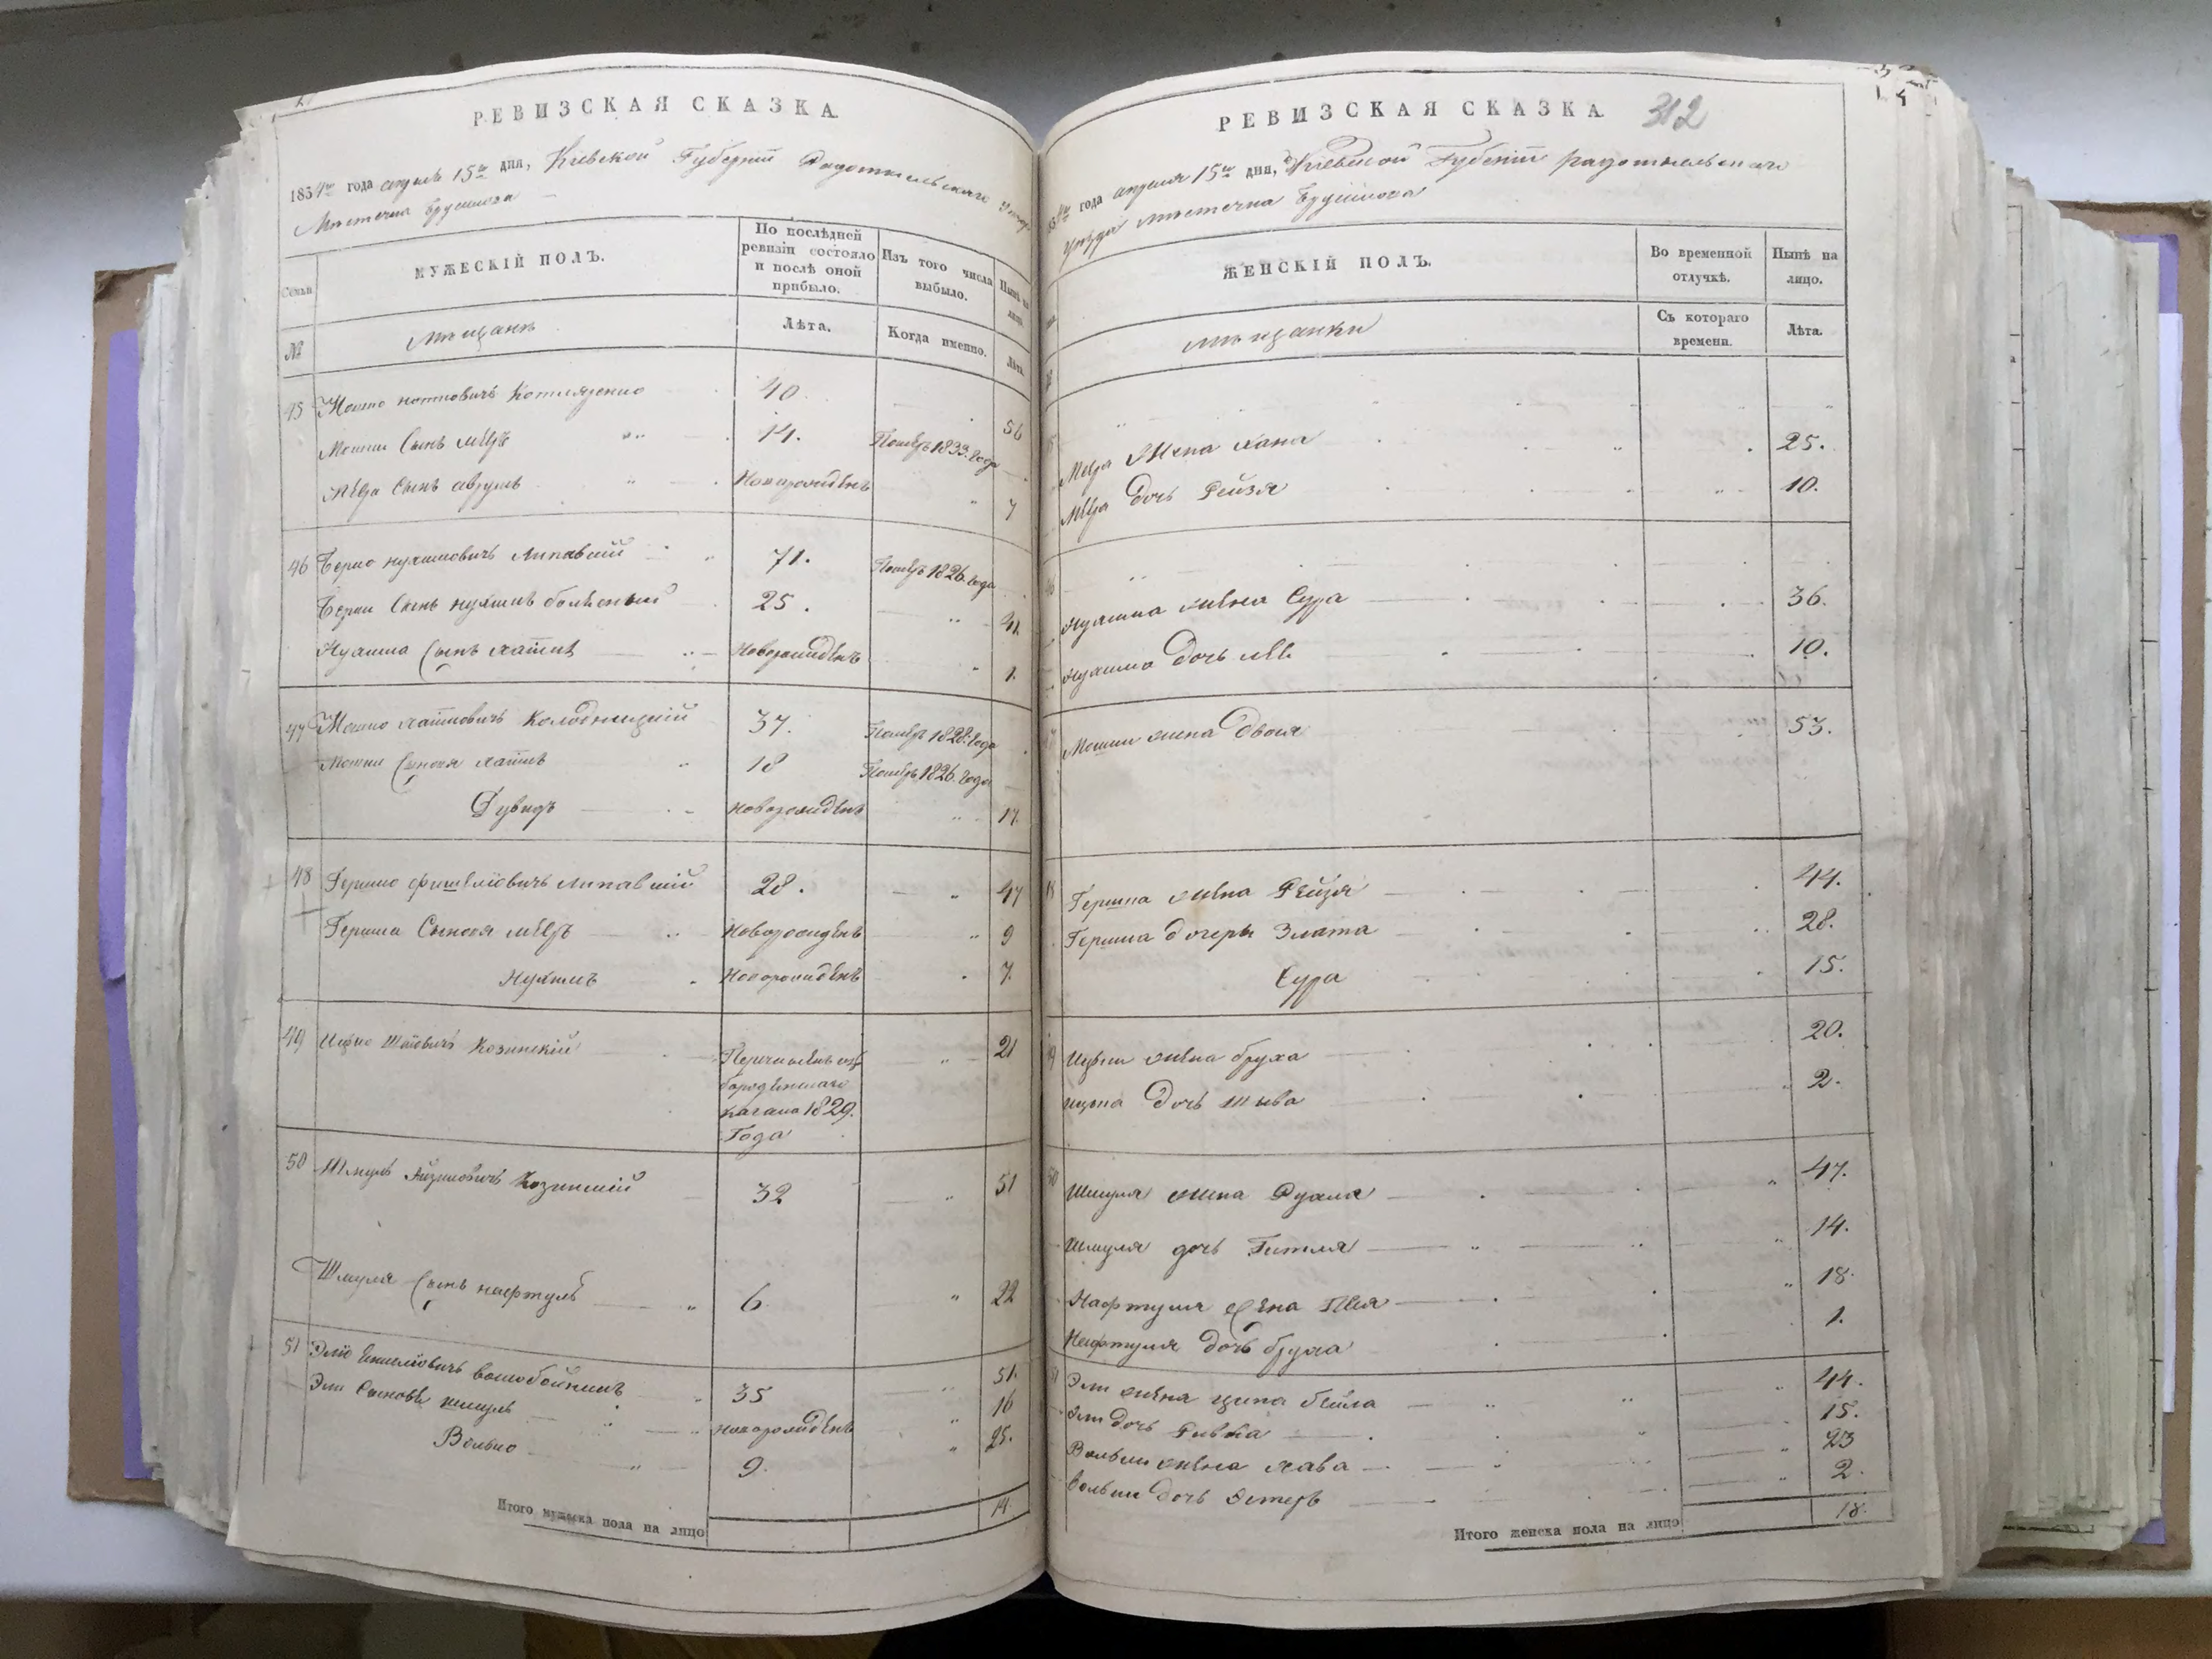 РЕВИЗСКАЯ СКАЗКА
1834го года апреля 15го дня, Кіевской Губерніи Радомысльскаго Уезда
Местечка Брусилова
Семьи
МУЖЕСКІЙ ПОЛЪ.
По послѣдней ревизіи состояло и послѣ оной прибыло.
Изъ того числа выбыло.
Нынѣ на лицо.
№
мещане
Лѣта.
Когда именно.
Лѣта.
45 Мошко Котляренко 40. 56
Мошки Сынъ Меер 14. Померъ 1833 года
Меера Сынъ аврумъ Новорожденъ 7
46 Берко нухимовичъ Липавский 71. Померъ 1826 года
Берки Сынъ нухимъ 25. 41.
Нухима Сынъ хаимъ Новорожденъ 1.
47 Мошко хаимовичъ Колодницкий 37. Померъ 1828 года
Мошки Сыновя хаимъ 18 Померъ 1826 года
Дувидъ новорожденъ 17.
48 Гершко фишеліовичъ липавский 28. 47
Гершка Сыновя меер Новорожденъ 9
Нухимъ Новорожденъ 7.
49 Ицко Козинский Перечисленъ из
кагала 1829.
Года 21
50 Шмуль Козинский 32 51
Шмуля Сынъ нафтула 6 22
51 Эліо воскобойникъ 35 51.
Эли Сыновя шмуль новорожденъ 16
Волько 9. 25.
Итого мужеска пола на лицо 14.
РЕВИЗСКАЯ СКАЗКА 312
года апреля 15го дня, Кіевской Губерніи радомысльскаго
уезда местечка Брусилова
ЖЕНСКІЙ ПОЛЪ.
Во временной отлучкѣ.
Нынѣ на лицо.
мещанки
Съ котораго времени.
Лѣта.
Меера Жена хана 25.
Меера Дочь Рейзя 10.
нухима жена Сура 36.
нухима дочь 10.
Мошки жена Двося 53.
Гершка жена Рейзя 44.
Гершка дочери Злата 28.
Сура 15.
Ицки жена бруха 20.
ицка Дочь 2.
Шмуля жена Рухля 47.
Шмуля дочь Гитля 14.
Нафтулы жена 18.
Нафтуля дочь бруха 1.
Эли жена ципа бейла 44.
Эли дочь Ривка 15.
Вольки жена хава 23
вольки дочь Эстеръ 2.
Итого женска пола на лицо 18.